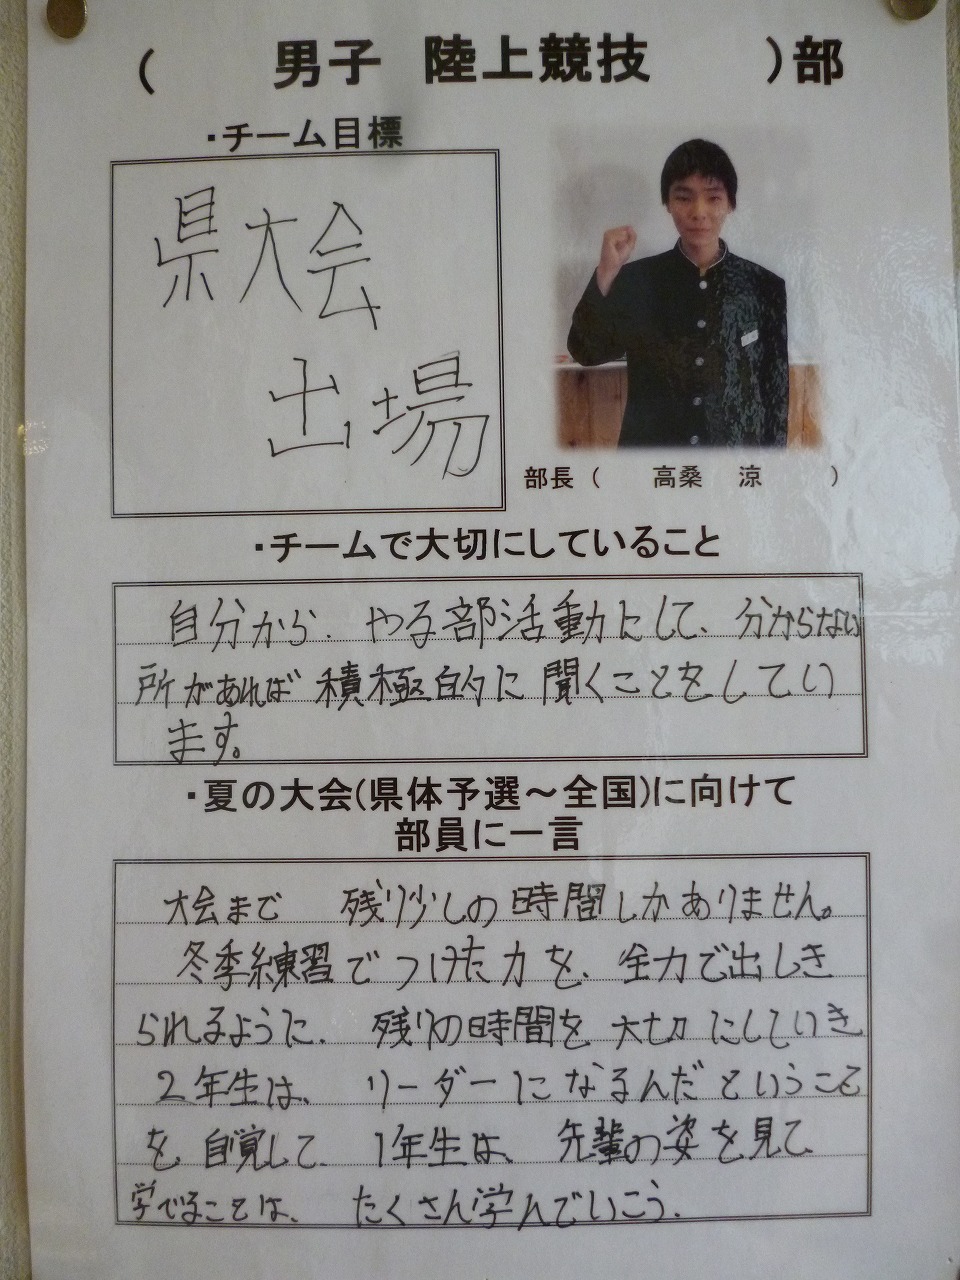 ( 男子 陸上競技 )部
・チーム目標
県大会
出場
部長 ( 高桑 涼 )
・チームで大切にしていること
自分から、やる部活動にして、分からない
所があれば積極的に聞くことをしてい
ます。
・夏の大会(県体予選～全国)に向けて
部員に一言
大会まで 残り少しの時間しかありません。
冬季練習でつけた力を、全力で出しき
られるように、残りの時間を大切にしていき
2年生は、リーダーになるんだということ
を、自覚して、1年生は、先輩の姿を見て
学べることは、たくさん学んでいこう。